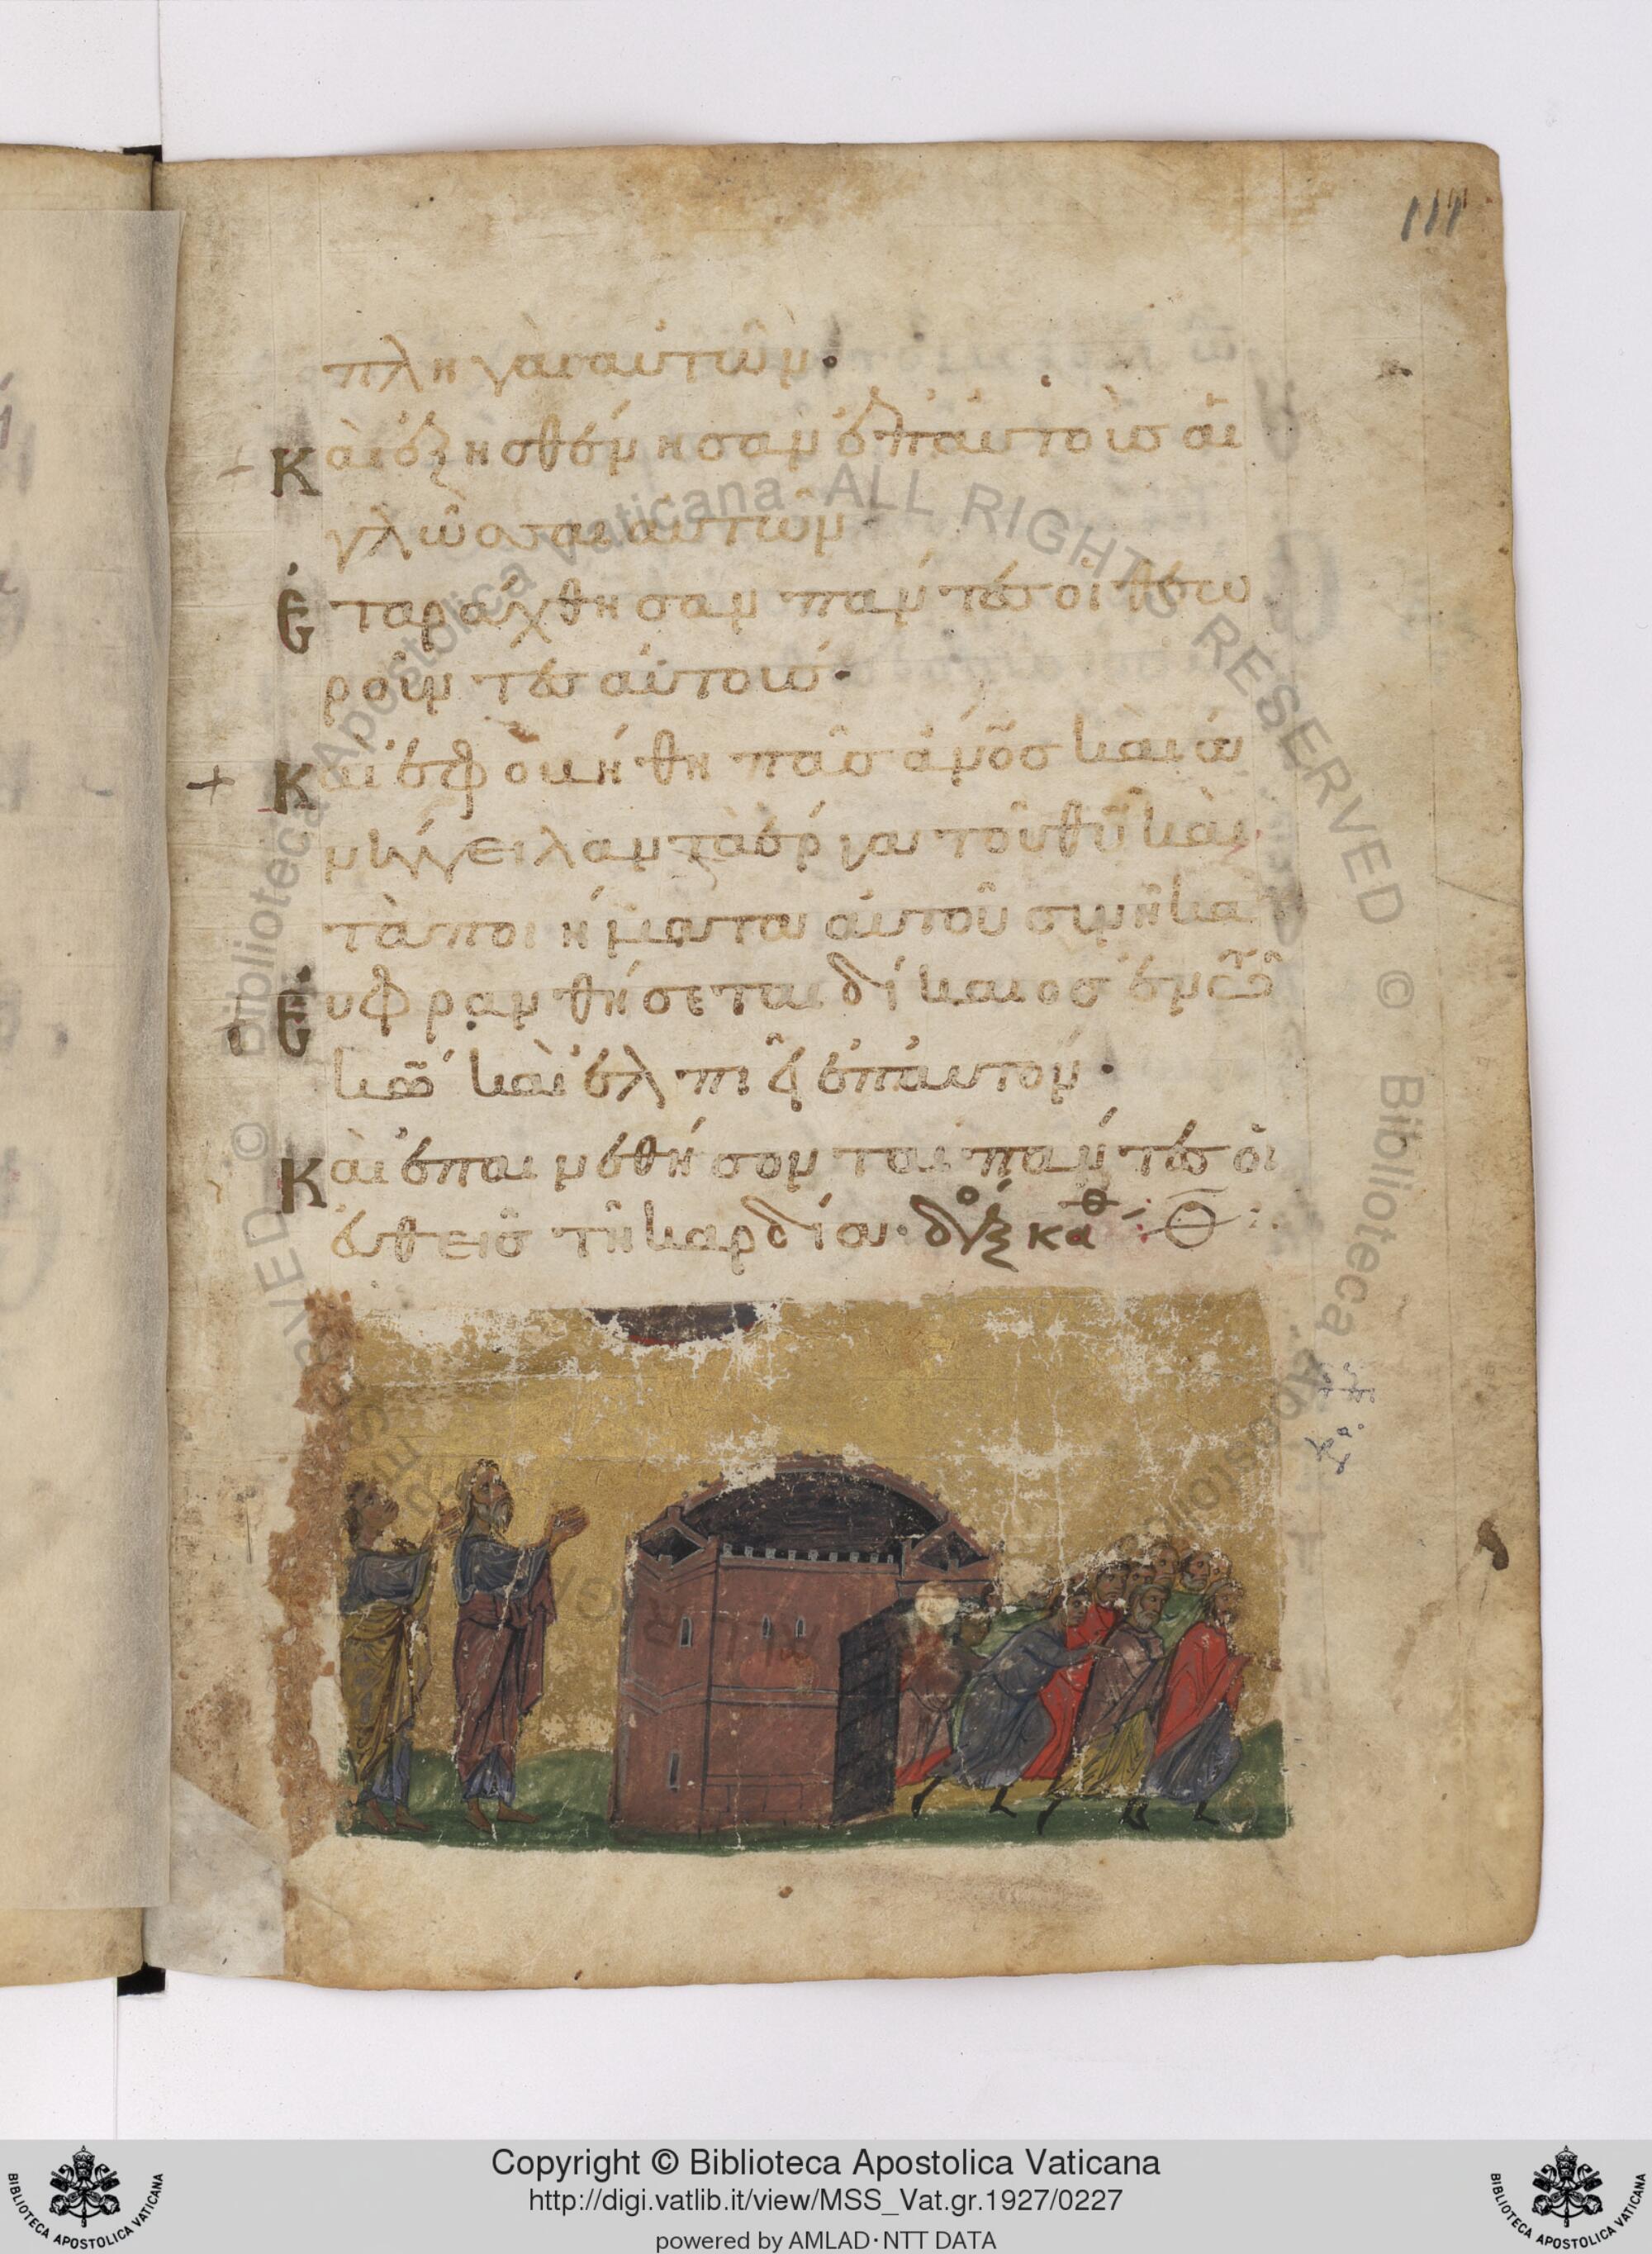 111
πληγαὶ αὐτῶν·
Καὶ ἐξησθένησαν ἐπ αὐτοὺσ αἱ
γλῶσσαι αὐτῶν·
Ἐταράχθησαν πάντεσ οἱ θεω
ροῦντεσ αὐτούσ·
Καὶ ἐφοβήθη πᾶσ ἄνοσ καὶ ἀ
νήγγειλαν τὰ ἔργα τοῦ θυ καὶ
τὰ ποιήματα αὐτοῦ συνῆκα
Εὐφρανθήσεται δίκαιοσ ἐν τῶ
κω καὶ ἐλπιεῖ ἐπ αὐτόν·
Καὶ ἐπαινεθήσονται πάντεσ οἱ
εὐθεῖσ τῆ καρδία·
Biblioteca Apostolica Vaticana ALL RIGHTS RESERVED © Biblioteca Apostolica
Copyright © Biblioteca Apostolica Vaticana
http://digi.vatlib.it/view/MSS_Vat.gr.1927/0227
powered by AMLAD·NTT DATA
BIBLIOTECA APOSTOLICA VATICANA
BIBLIOTECA APOSTOLICA VATICANA